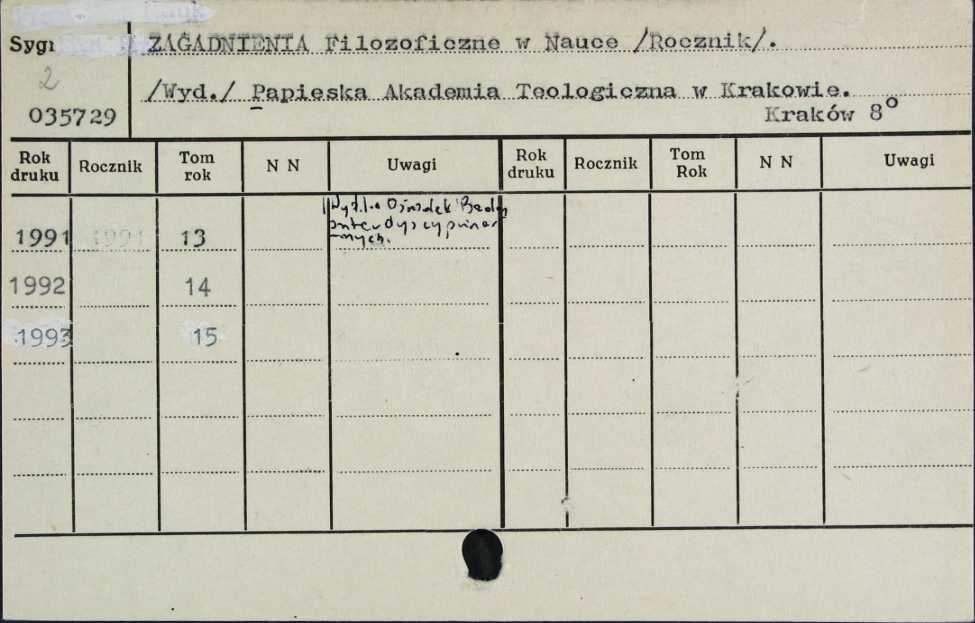 Sygn ZAGADNIENIA Filozoficzne w Nauce /Rocznik/.
2
/Wyd./ Papieska Akademia Teologiczna w Krakowie.
035729 Kraków 8°
Rok druku Rocznik Tom rok N N Uwagi Rok druku Rocznik Tom Rok N N Uwagi
Ośrodek Badań
interdyscyplinar
nych.
1991 1991 13
1992 14
1993 15